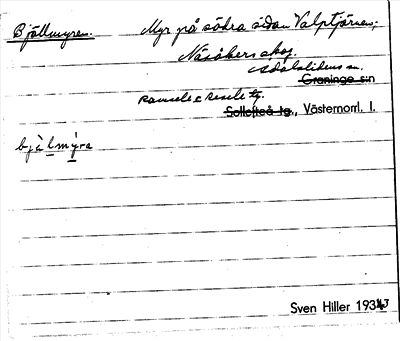 Bjällmyren. Myr på södra sidan Valptjärnen;
Näsåkers skog.
Ådalslidens sn.
Graninge sn
Ramsele o Resele tg.
Sollefteå tg., Västernorrl. l.
bjälmýra
Sven Hiller 1943